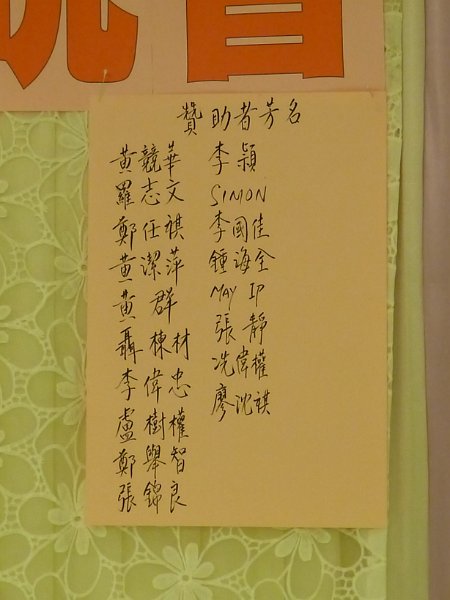 贊助者芳名
黃競華
羅志文
鄭任祺
黃潔萍
黃群
聶棟材
李偉忠
盧樹權
鄭舉智
張錦良
李穎
SIMON
李國佳
鍾海全
MAY IP
張靜
冼偉權
廖沈祺